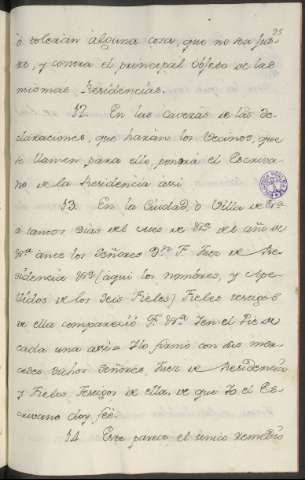 25
ó toleran alguna cosa, que no sea jus-
to, y contra el principal objeto de las
mismas Residencias.
12 En las caveras de las De-
claraciones, que harán los Vecinos, que
se llamen para ello, pondrá el Escriva-
no de la Residencia así
13. En la Ciudad, o Villa de
a tantos dias del mes de del año de
ante los Señores Dn F. Juez de Re-
sidencia (aquí los nombres, y Ape-
llidos de los Seis Fieles) Fieles testigos
de ella compareció F. Y en el Pie de
cada una así = Lo firmó con sus mer-
cedes dichos Señores, Juez de Residencia
y Fieles Testigos de ella, de que Yo el Es-
crivano doy fee.
14 Este parece el unico remedio